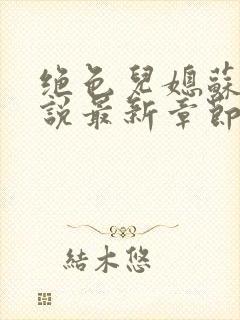 绝色兒媳蘇
說最新章節
結木悠